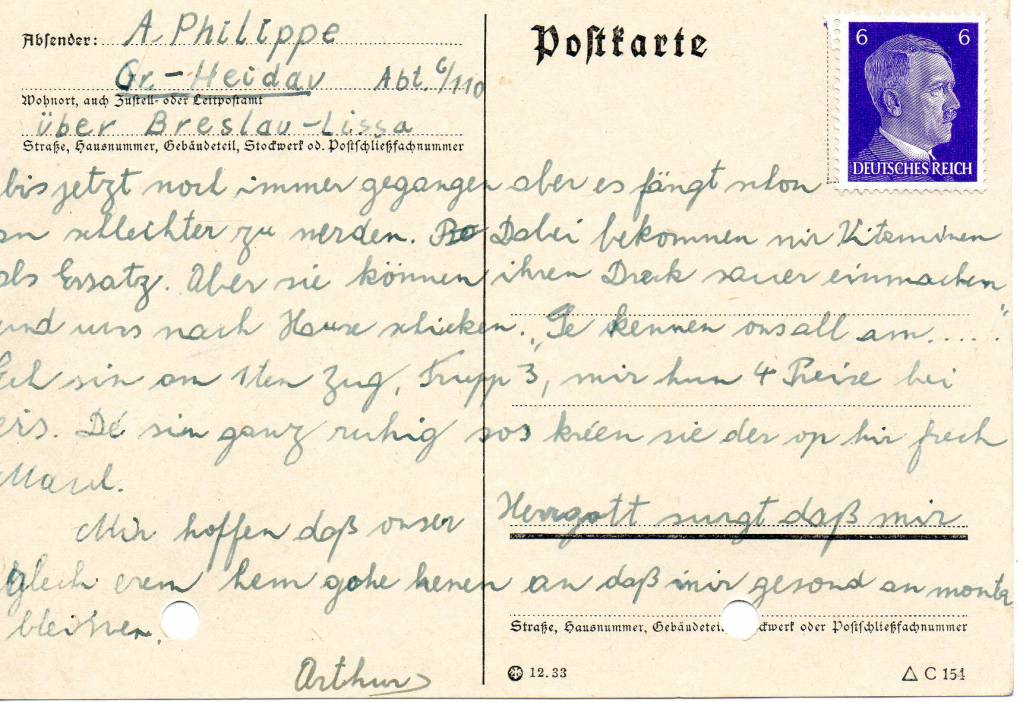 Absender: A. Philippe
Gr.-Heidau Abt. 6/110
Wohnort, auch Zustell- oder Leitpostamt
über Breslau-Lissa
Straße, Hausnummer, Gebäudeteil, Stockwerk od. Postschließfachnummer
Postkarte
6 6
DEUTSCHES REICH
bis jetzt noch immer gegangen aber es fängt schon
an schlechter zu werden. Dabei bekommen wir Vitaminen
als Ersatz. Aber sie können ihren Dreck sauer einmachen
und uns nach Hause schicken. „Se kennen ons all am......"
Ech sin am 1ten Zug, Trupp 3, mir hun 4 Preise bei
eis. Dé sin ganz ruhig sos kréen sie der op hir frech
Maul.
Mir hoffen daß onser Herrgott surgt daß mir
glech erem hem gohe kenen an daß mir gesond an monter
bleiwen.
Arthur
Straße, Hausnummer, oder Postschließfachnummer
12.33
C 154